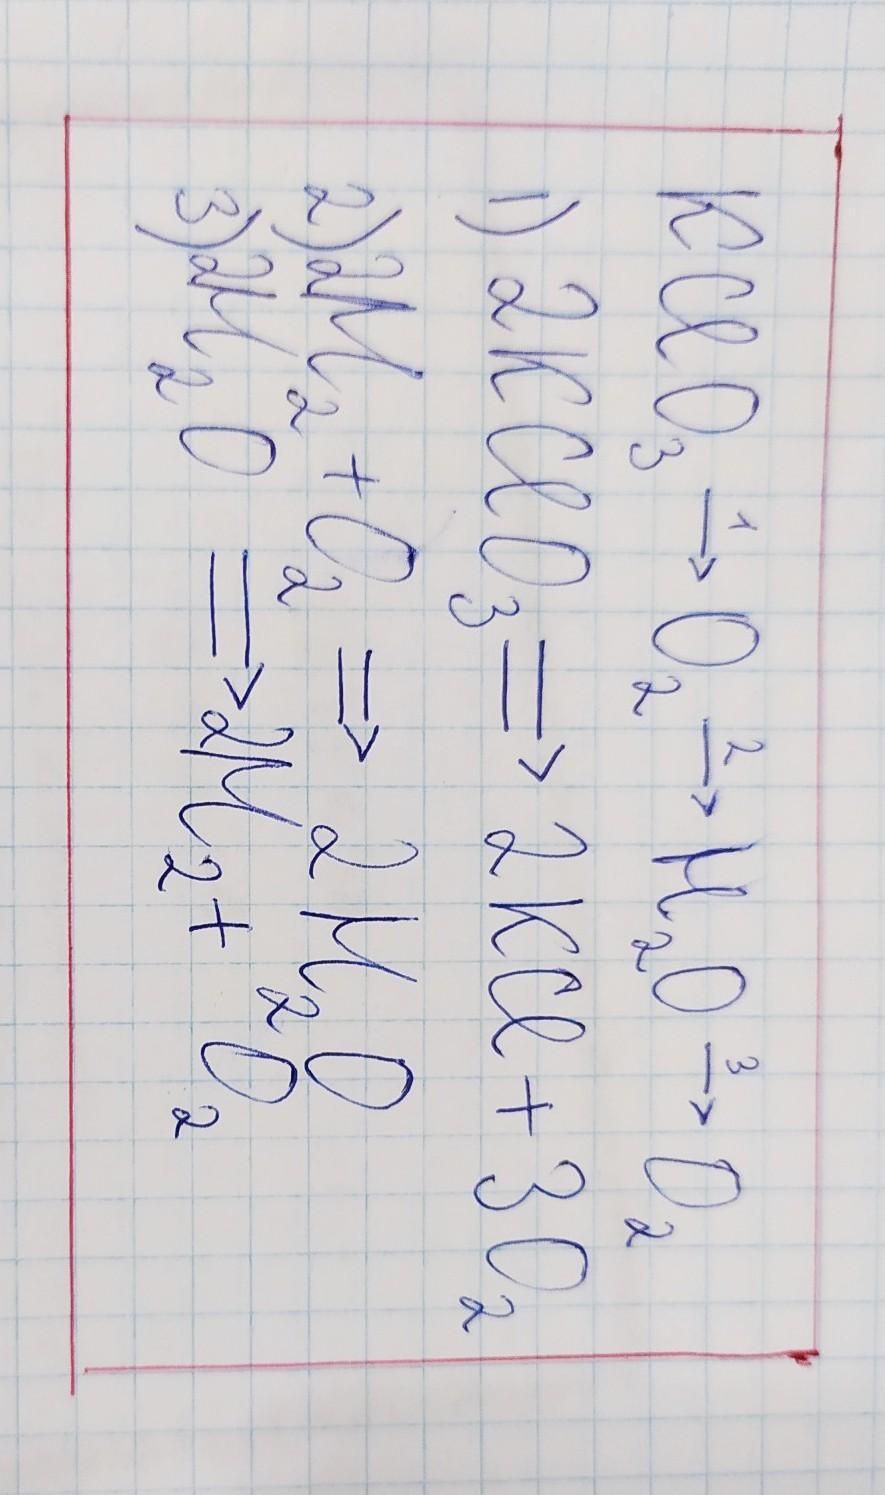 KClO₃ →¹ O₂ →² H₂O →³ O₂
1) 2KClO₃ ⇒ 2KCl + 3O₂
2) 2H₂ + O₂ ⇒ 2H₂O
3) 2H₂O ⇒ 2H₂ + O₂